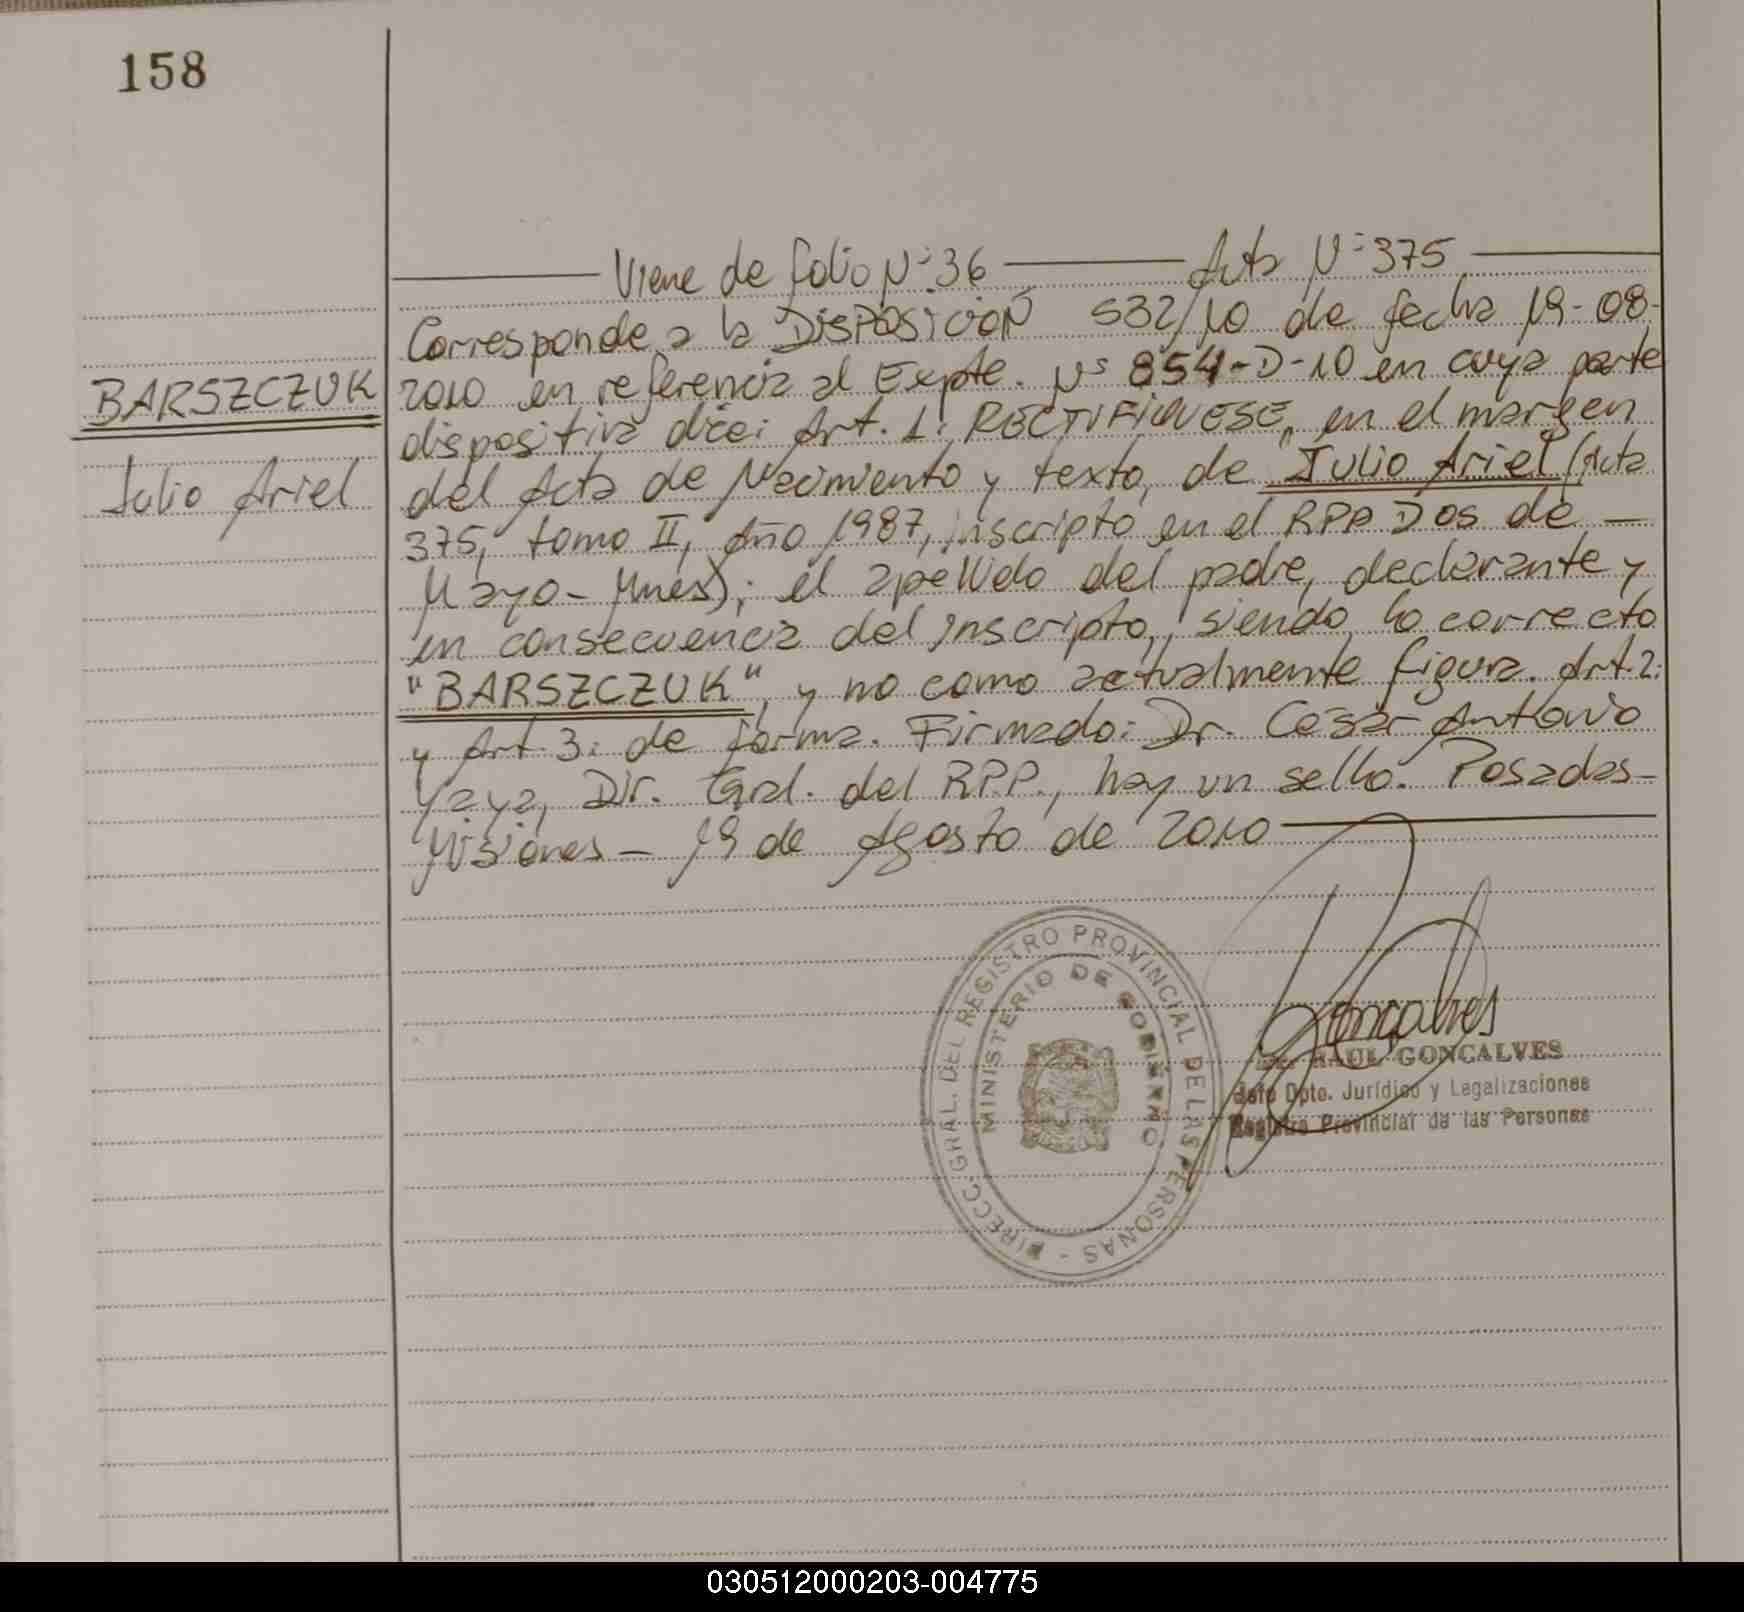 158
Viene de folio Nº: 36 Acta Nº: 375
Corresponde a la DISPOSICIÓN 532/10 de fecha 19-08-
BARSZCZUK
2010 en referencia al Expte. Nº 854-D-10 en cuya parte
dispositiva dice: Art. 1: RECTIFIQUESE, en el margen
Julio Ariel
del Acta de Nacimiento y texto, de "Julio Ariel (Acta
375, tomo II, Año 1987, inscripto en el RPP Dos de —
Mayo - Mnes); el apellido del padre, declarante y
en consecuencia del inscripto, siendo lo correcto
"BARSZCZUK", y no como actualmente figura. Art. 2:
y Art. 3: de forma. Firmado: Dr. Cesar Antonio
Yaya, Dir. Gral. del R.P.P., hay un sello. Posadas-
Misiones - 19 de Agosto de 2010
DIRECC. GRAL. DEL REGISTRO PROVINCIAL DE LAS PERSONAS -
MINISTERIO DE GOBIERNO
Goncalves
RAUL GONCALVES
Jefe Dpto. Jurídico y Legalizaciones
Registro Provincial de las Personas
030512000203-004775